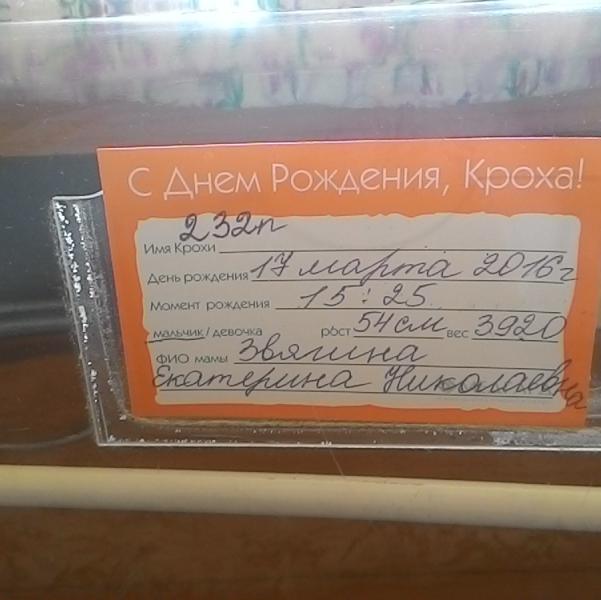 С Днем Рождения, Кроха!
232п
Имя Крохи
День рождения 17 марта 2016г
Момент рождения 15:25
мальчик / девочка рост 54см вес 3920
ФИО мамы Звягина
Екатерина Николаевна